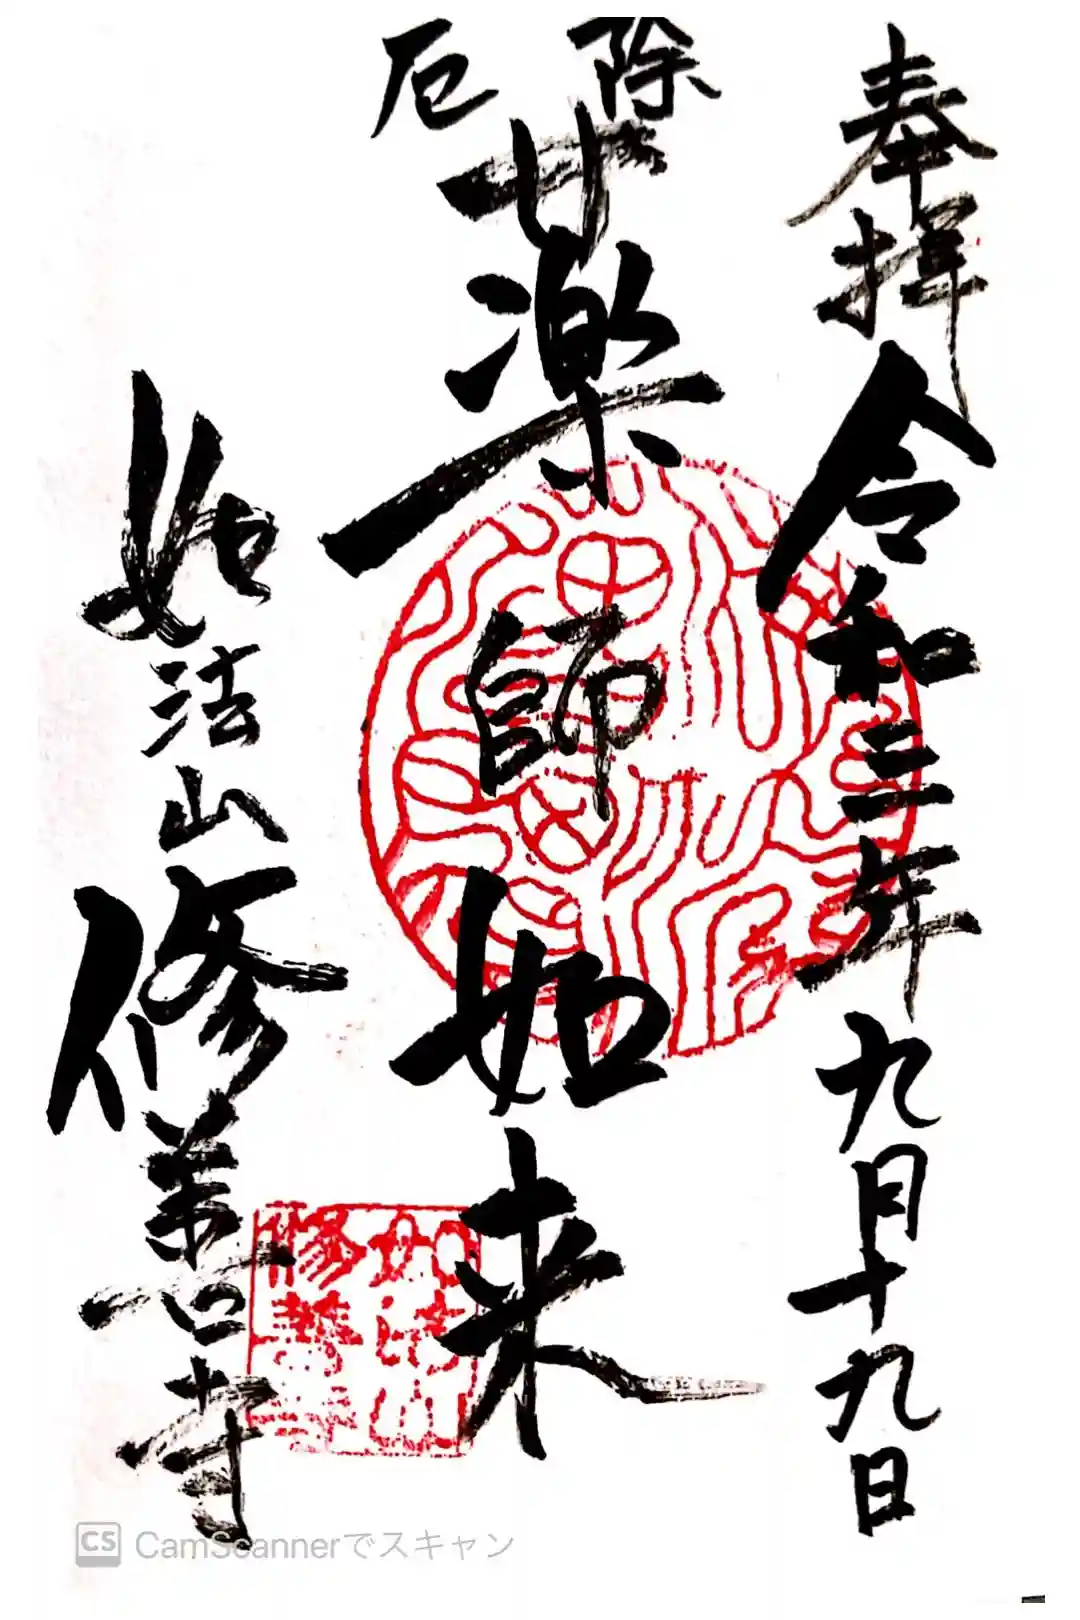 奉拝
令和三年九月十九日
除厄
薬師如来
如法山修善寺
如法山
修善寺
CS CamScannerでスキャン